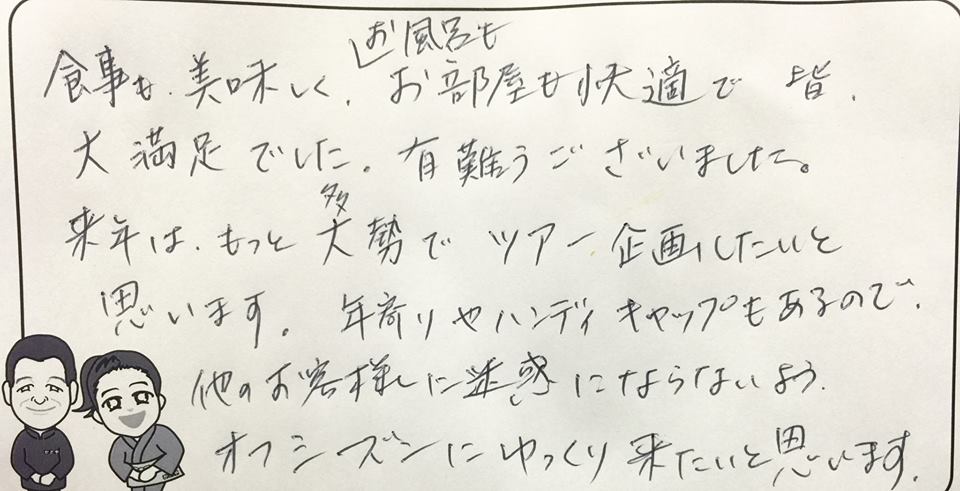 食事も、美味しく、お風呂もお部屋も快適で 皆、
大満足でした。有難うございました。
来年は、もっと 多
大勢で ツアー企画したいと
思います。年寄りやハンディキャップもあるので、
他のお客様に迷惑にならないよう、
オフシーズンにゆっくり来たいと思います。